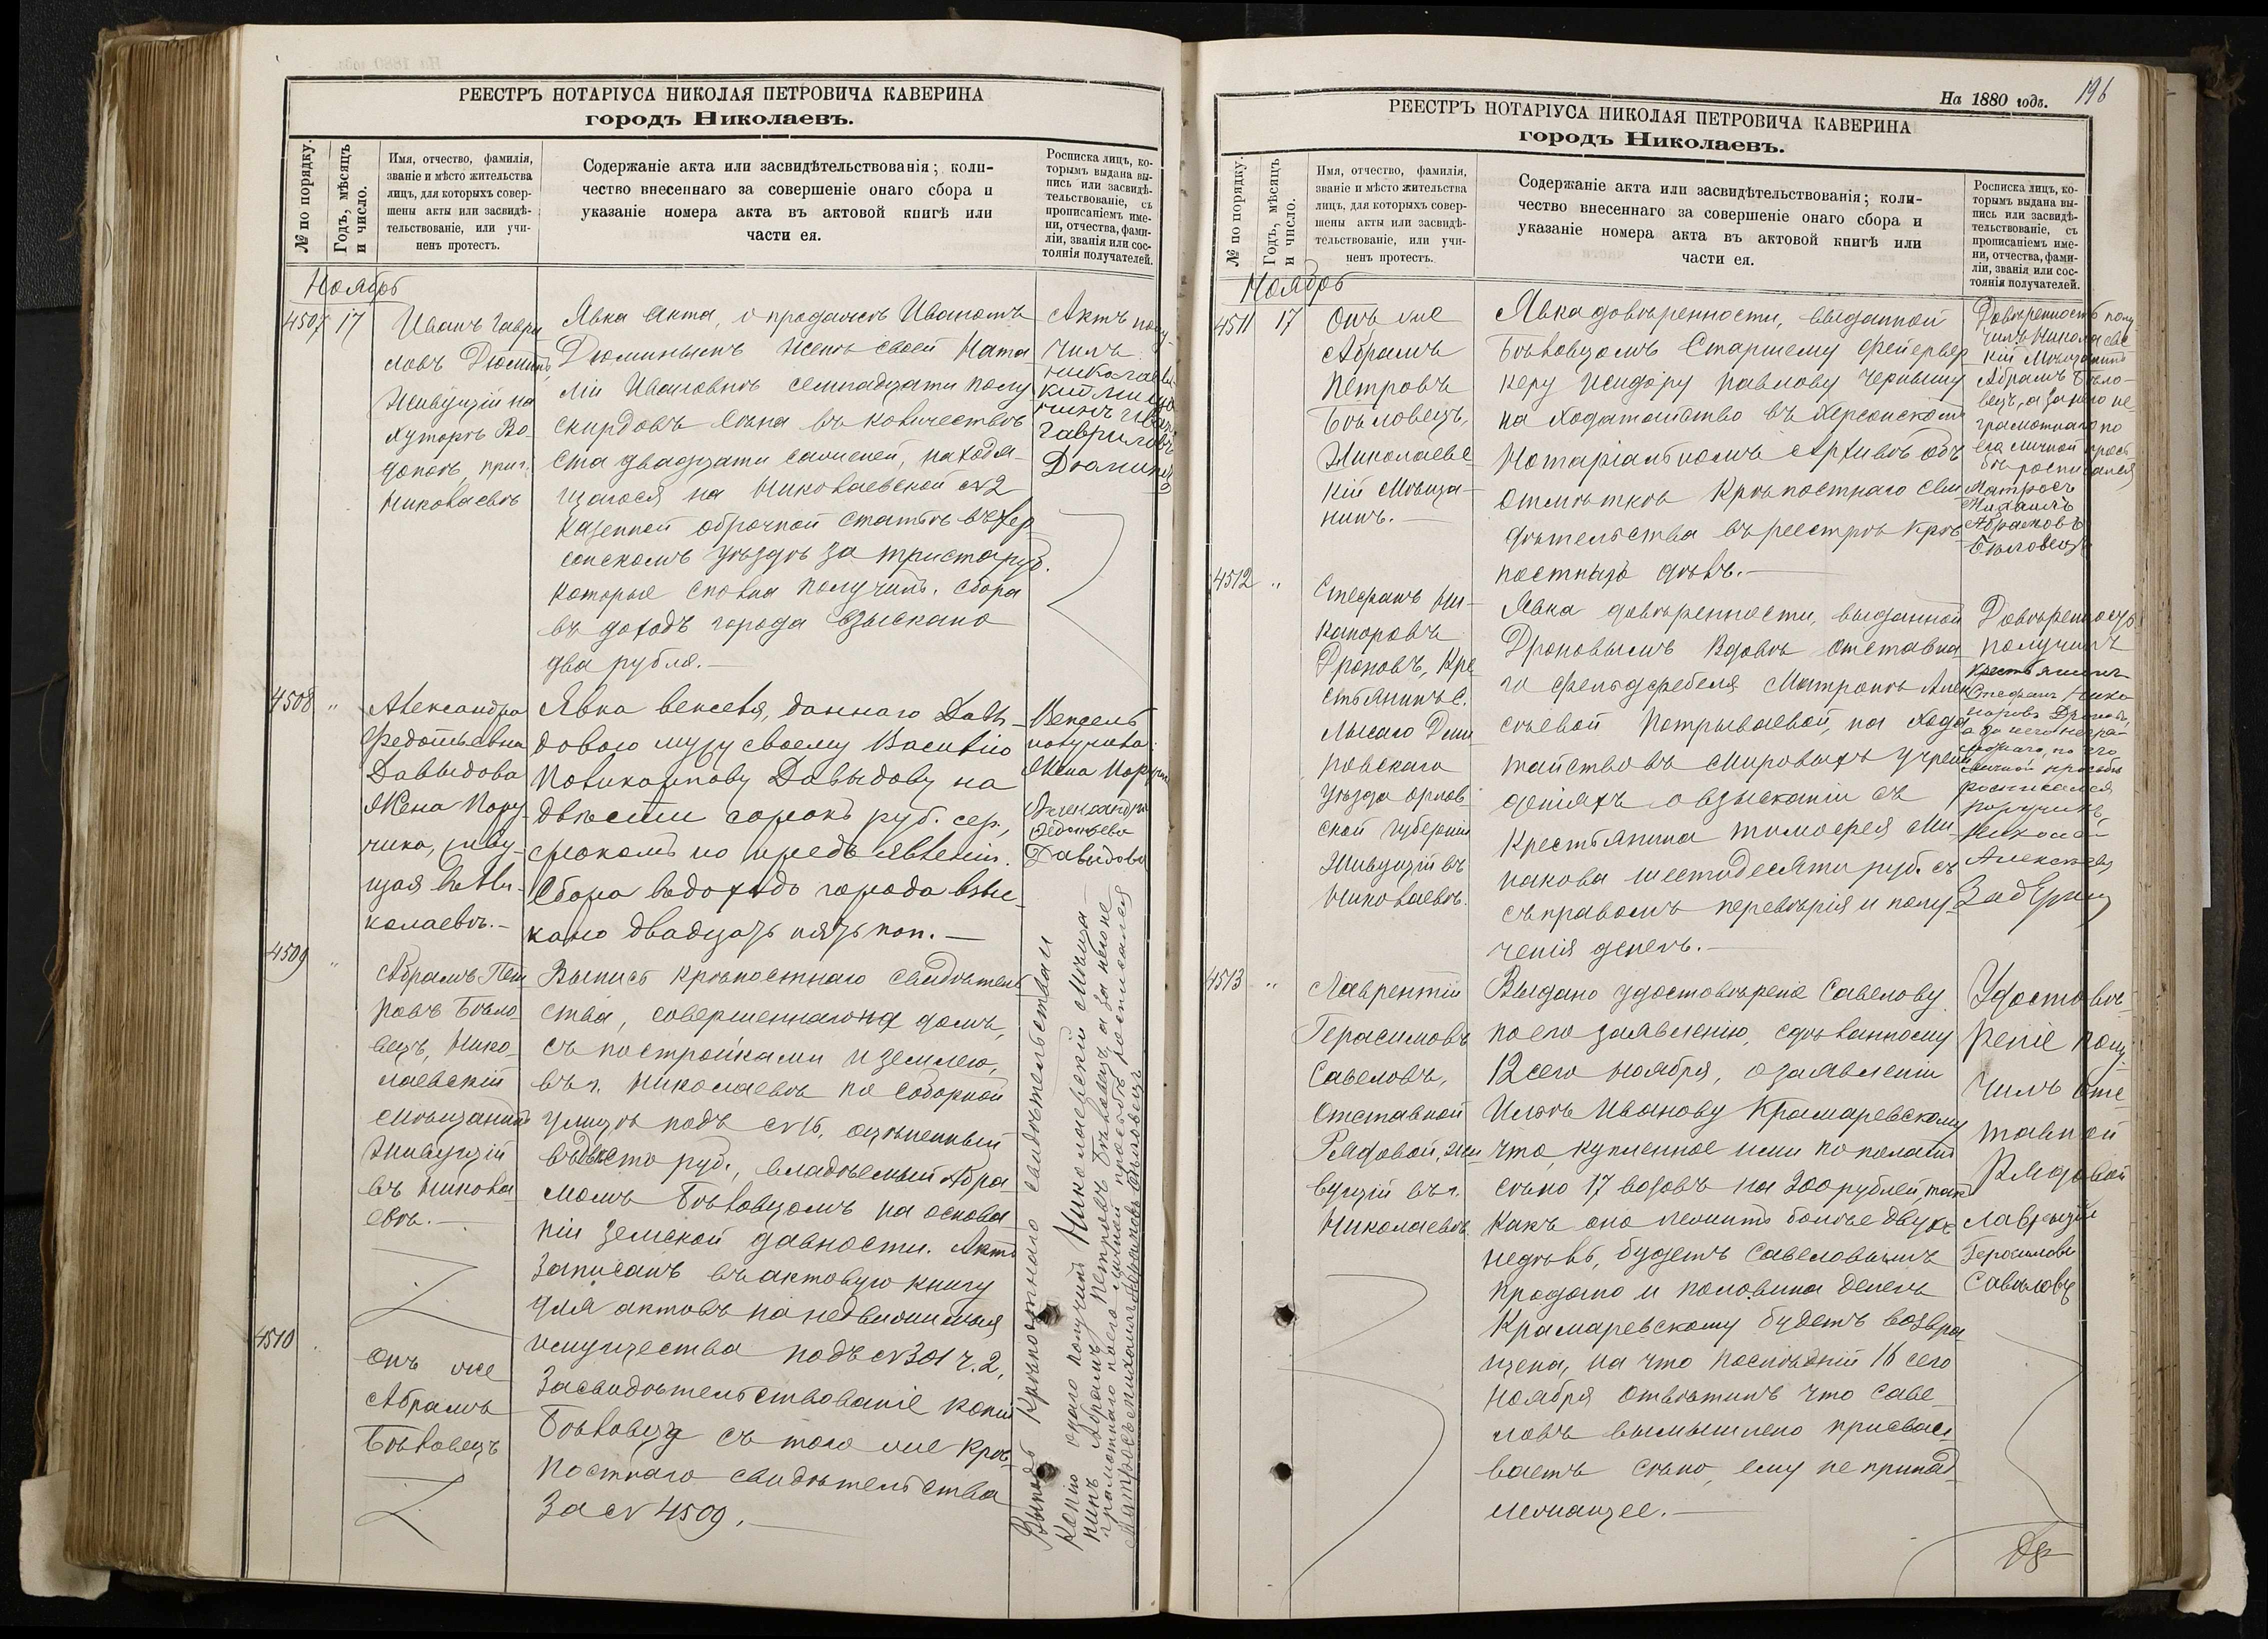 РЕЕСТРЪ НОТАРІУСА НИКОЛАЯ ПЕТРОВИЧА КАВЕРИНА
городъ Николаевъ.
№ по порядку.
Годъ, мѣсяцъ
и число.
Имя, отчество, фамилія,
званіе и мѣсто жительства
лицъ, для которыхъ совер-
шены акты или засвидѣ-
тельствованіе, или учи-
ненъ протестъ.
Содержаніе акта или засвидѣтельствованія; коли-
чество внесеннаго за совершеніе онаго сбора и
указаніе номера акта въ актовой книгѣ или
части ея.
Росписка лицъ, ко-
торымъ выдана вы-
пись или засвидѣ-
тельствованіе, съ
прописаніемъ име-
ни, отчества, фами-
ліи, званія или сос-
тоянія получателей.
Ноябрь
4507 17
Иванъ Гаври
ловъ Дюминъ,
Живущій на
хуторѣ Во-
допоѣ, приг.
Николаевѣ
Явка акта, о продажѣ Иваномъ
Дюминымъ женѣ своей Ната
ліи Ивановнѣ семнадцати полу
скирдовъ сѣна въ количествѣ
ста двадцати саженей, находя-
щагося на Николаевской №2
казенной оброчной статьѣ въ Хер-
сонскомъ уѣздѣ за триста руб.
которые сполна получилъ. Сбора
въ доходъ города взыскано
два рубля.—
Актъ полу-
чилъ
Николаевс
кій Мѣща
нинъ Иванъ
Гавриловъ
Дюминъ
4508 "
Александра
Федотьевна
Давыдова
Жена Пору-
чика, живу-
щая въ Ни-
колаевѣ.—
Явка векселя, даннаго Давы-
довою мужу своему Василію
Поликарпову Давыдову на
двѣсти сорокъ руб. сер.,
срокомъ по предъявленіи.
Сбора въ доходъ города взыс-
кано двадцать пять коп.—
Вексель
получила
Жена Поруч
Александра
Федотьева
Давыдова
4509 "
Абрамъ Пет
ровъ Бѣло-
вецъ, Нико-
лаевскій
Мѣщанинъ
Живущій
въ Никола
евѣ.—
Выпись крѣпостнаго свидѣтель
ства, совершеннаго на домъ,
съ постройками и землею,
въ г. Николаевѣ по Соборной
улицѣ подъ №16, оцѣненный
въ двѣсто руб., владѣемый Абра-
момъ Бѣловцомъ на основа
ніи земской давности. Актъ
записанъ въ актовую книгу
для актовъ на недвижимыя
имущества подъ №301 ч. 2.
4510
Онъ же
Абрамъ
Бѣловецъ
Засвидѣтельствованіе копіи
Бѣловцу съ того же крѣ-
постнаго свидѣтельства
за № 4509.—
Выпись крѣпостнаго свидѣтельства и
копію онаго получилъ Николаевскій Мѣща-
нинъ Абрамъ Петровъ Бѣловецъ а за него не
грамотнаго по его личной просьбѣ росписался
Матросъ Михаилъ Абрамовъ Бѣловецъ
На 1880 годъ.
196
РЕЕСТРЪ НОТАРІУСА НИКОЛАЯ ПЕТРОВИЧА КАВЕРИНА
городъ Николаевъ.
№ по порядку.
Годъ, мѣсяцъ
и число.
Имя, отчество, фамилія,
званіе и мѣсто жительства
лицъ, для которыхъ совер-
шены акты или засвидѣ-
тельствованіе, или учи-
ненъ протестъ.
Содержаніе акта или засвидѣтельствованія; коли-
чество внесеннаго за совершеніе онаго сбора и
указаніе номера акта въ актовой книгѣ или
части ея.
Росписка лицъ, ко-
торымъ выдана вы-
пись или засвидѣ-
тельствованіе, съ
прописаніемъ име-
ни, отчества, фами-
ліи, званія или сос-
тоянія получателей.
Ноябрь
4511 17
Онъ же
Абрамъ
Петровъ
Бѣловецъ,
Николаевс-
кій Мѣща-
нинъ.—
Явка довѣренности, выданной
Бѣловцомъ Старшему фейервер
керу Исидору Павлову Чернышу
на ходатайство въ Херсонскомъ
Нотаріальномъ Архивѣ объ
отмѣткѣ крѣпостнаго сви-
дѣтельства въ реестрѣ крѣ-
постныхъ дѣлъ.—
Довѣренность полу
чилъ Николаевс
кій Мѣщанинъ
Абрамъ Бѣло-
вецъ, а за него не-
грамотнаго по
его личной прось
бѣ росписался
Матросъ
Михаилъ
Абрамовъ
Бѣловецъ
4512 "
Стефанъ Ни-
каноровъ
Дроновъ, Кре
стьянинъ с.
Лысаго Дми
ровскаго
уѣзда Орлов-
ской губерніи
Живущій въ
Николаевѣ.
Явка довѣренности, выданной
Дроновымъ Вдовѣ отставна-
го фельдфебеля Матронѣ Алек
сѣевой Потрываевой, на хода
тайство въ Мировыхъ учреж
деніяхъ о взысканіи съ
Крестьянина Тимофея Ми-
накова шестидесяти руб. съ
съ правомъ перевѣрія и полу-
ченія денегъ.—
Довѣренность
получилъ
крестьянинъ
Стефанъ Ника
норовъ Дроновъ,
а за него негра-
мотнаго, по его
личной просьбѣ
росписался
поручикъ
Николай
Алексѣевъ
4513 "
Лаврентій
Герасимовъ
Савеловъ,
Отставной
Рядовой, Жи
вущій въ г.
Николаевѣ
Выдано удостовѣреніе Савелову
по его заявленію, сдѣланному
12 сего ноября, о заявленіи
Ильѣ Иванову Крамаревскому
что, купленное ими пополамъ
сѣно 17 возовъ на 300 рублей, такъ
какъ оно лежитъ болѣе двухъ
недѣль, будетъ Савеловымъ
продано и половина денегъ
Крамаревскому будетъ возвра
щена, на что послѣдній 16 сего
ноября отвѣтилъ что Саве-
ловъ вымышлено присваи
ваетъ сѣно, ему не принад-
лежащее.—
Удостовѣ-
реніе полу-
чилъ отс-
тавной
Рядовой
Лаврентій
Герасимовъ
Савеловъ